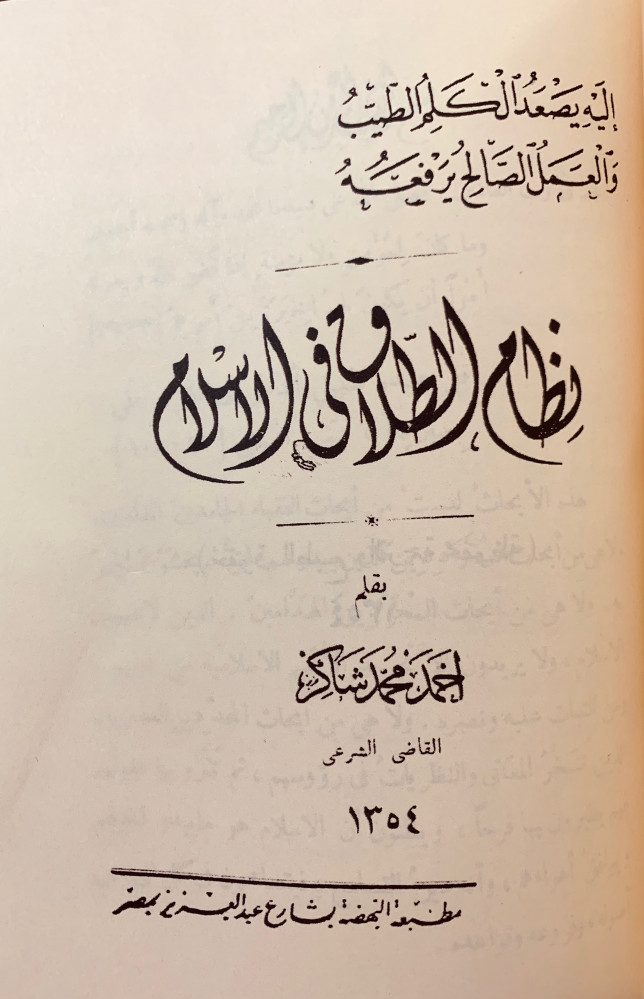 إِلَيْهِ يَصْعَدُ ٱلْكَلِمُ ٱلطَّيِّبُ
وَٱلْعَمَلُ ٱلصَّالِحُ يَرْفَعُهُ
نظام الطّلاق في الاسلام
بقلم
أحمد محمد شاكر
القاضى الشرعى
١٣٥٤
مطبعة النهضة بشارع عبد العزيز بمصر